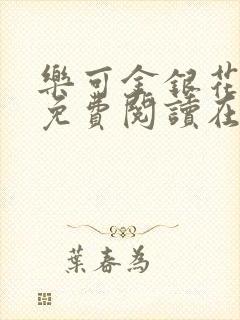 樂可金銀花
免費閱讀在
葉春為